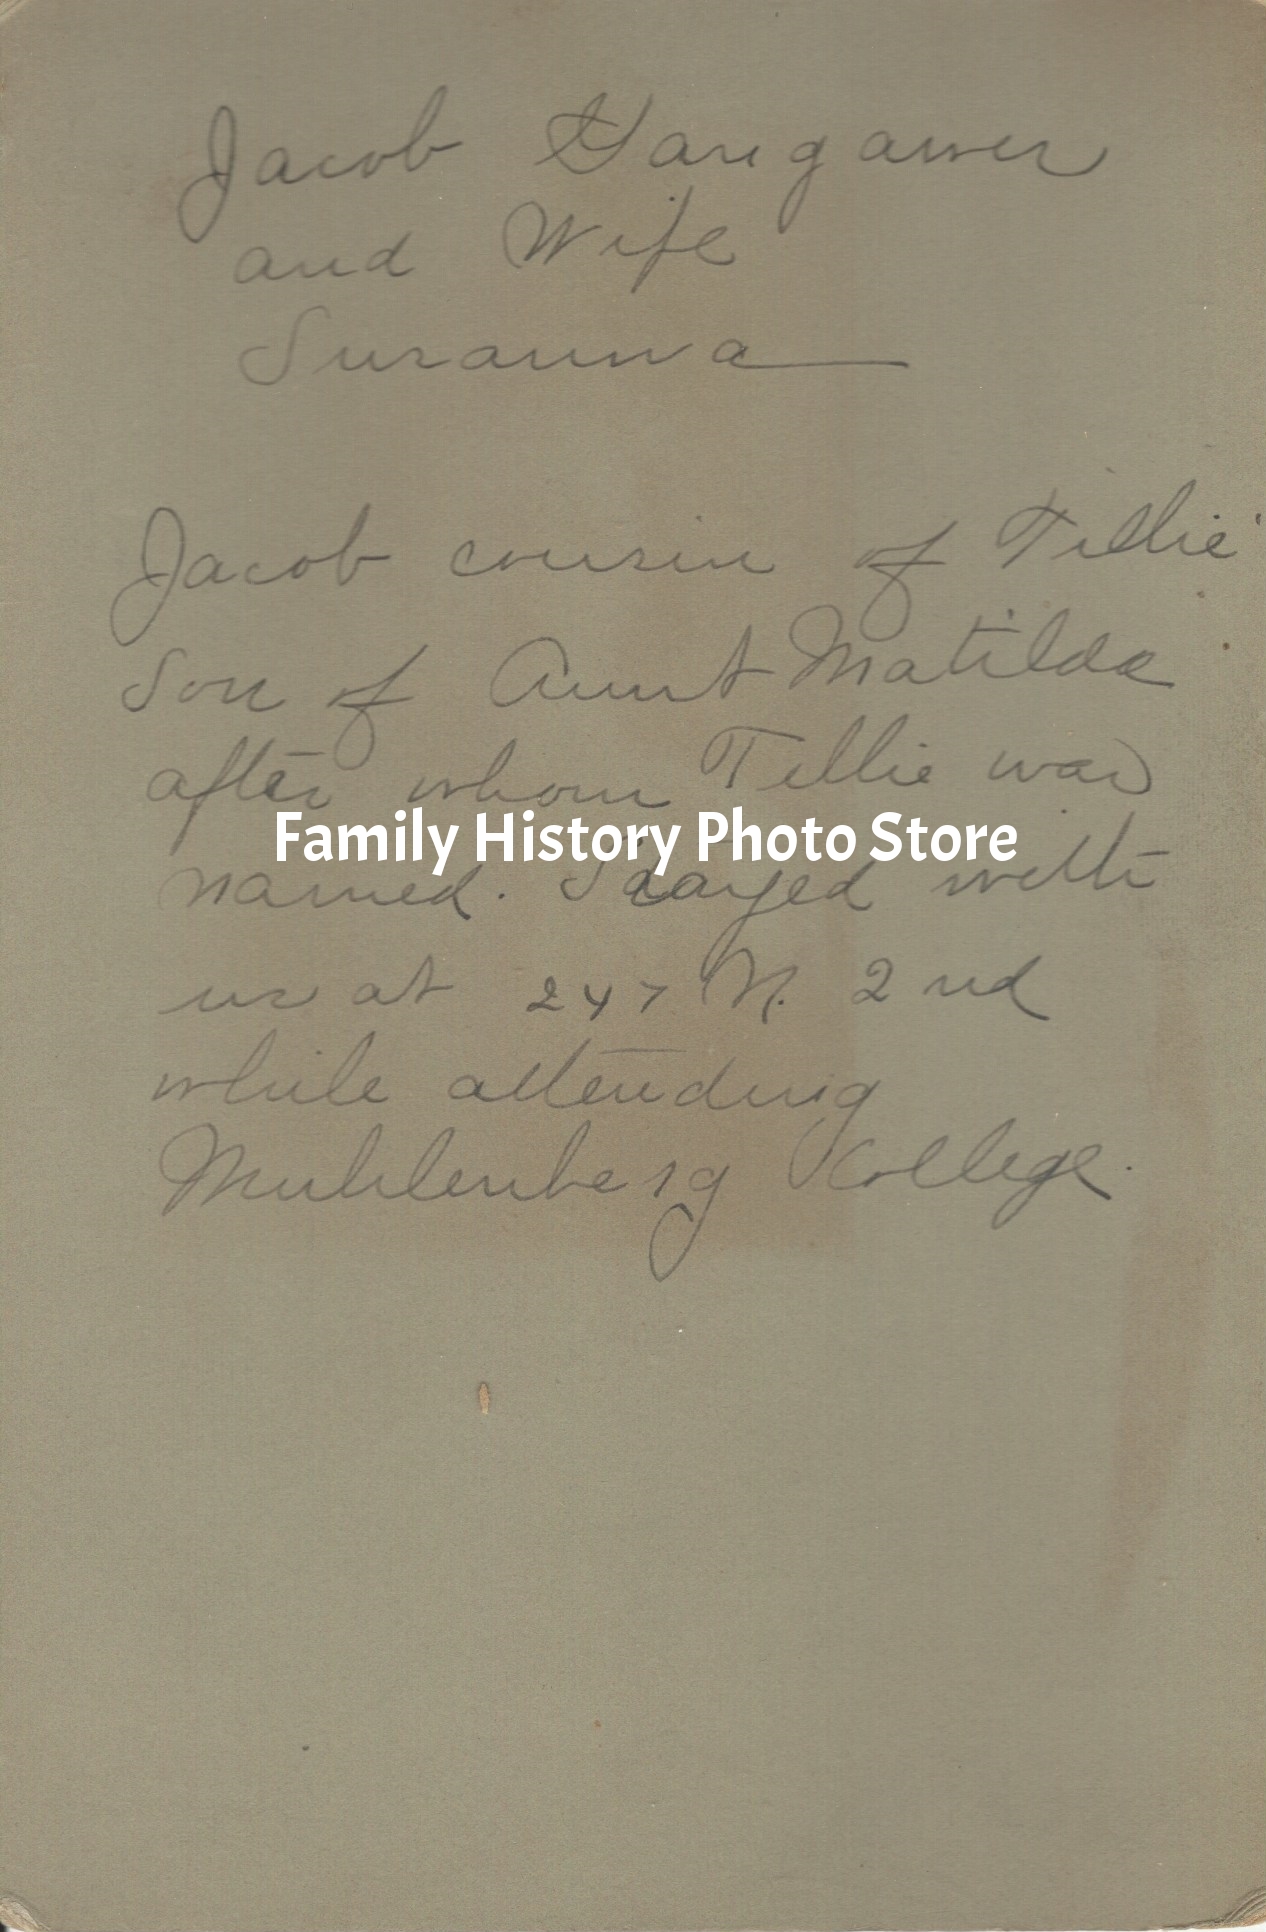 Jacob Gangawer
and Wife
Susanna
Jacob cousin of Tillie
Son of Aunt Matilda
after whom Tillie was
Family History Photo Store
named. Stayed with
us at 247 N. 2nd
while attending
Muhlenberg College.